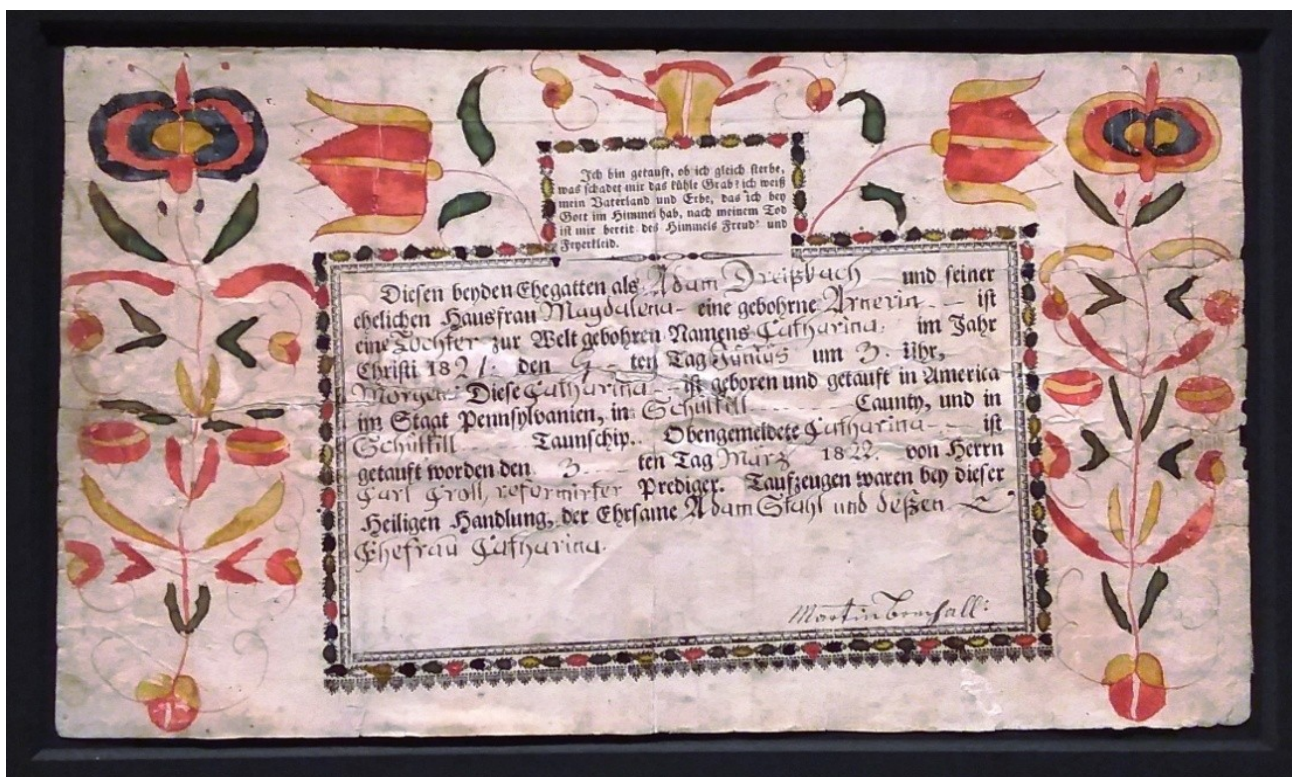 Ich bin getauft, ob ich gleich sterbe,
was schadet mir das kühle Grab? ich weiß
mein Vaterland und Erbe, das ich bey
Gott im Himmel hab, nach meinem Tod
ist mir bereit des Himmels Freud' und
Feyerkleid.
Diesen beyden Ehegatten als Adam Dreißbach und seiner
ehelichen Hausfrau Magdalena eine gebohrne Arnerin ist
eine Tochter zur Welt gebohren Namens Catharina im Jahr
Christi 1821. den ten Tag Junius um 3. Uhr,
Morgens Diese Catharina ist geboren und getauft in America
im Staat Pennsylvanien, in Schülkill Caunty, und in
Schülkill Taunschip. Obengemeldete Catharina ist
getauft worden den 3 ten Tag März 1822. von Herrn
Carl reformirter Prediger. Taufzeugen waren bey dieser
Heiligen Handlung, der Ehrsame Adam Stahl und deßen
Ehefrau Catharina.
Martin